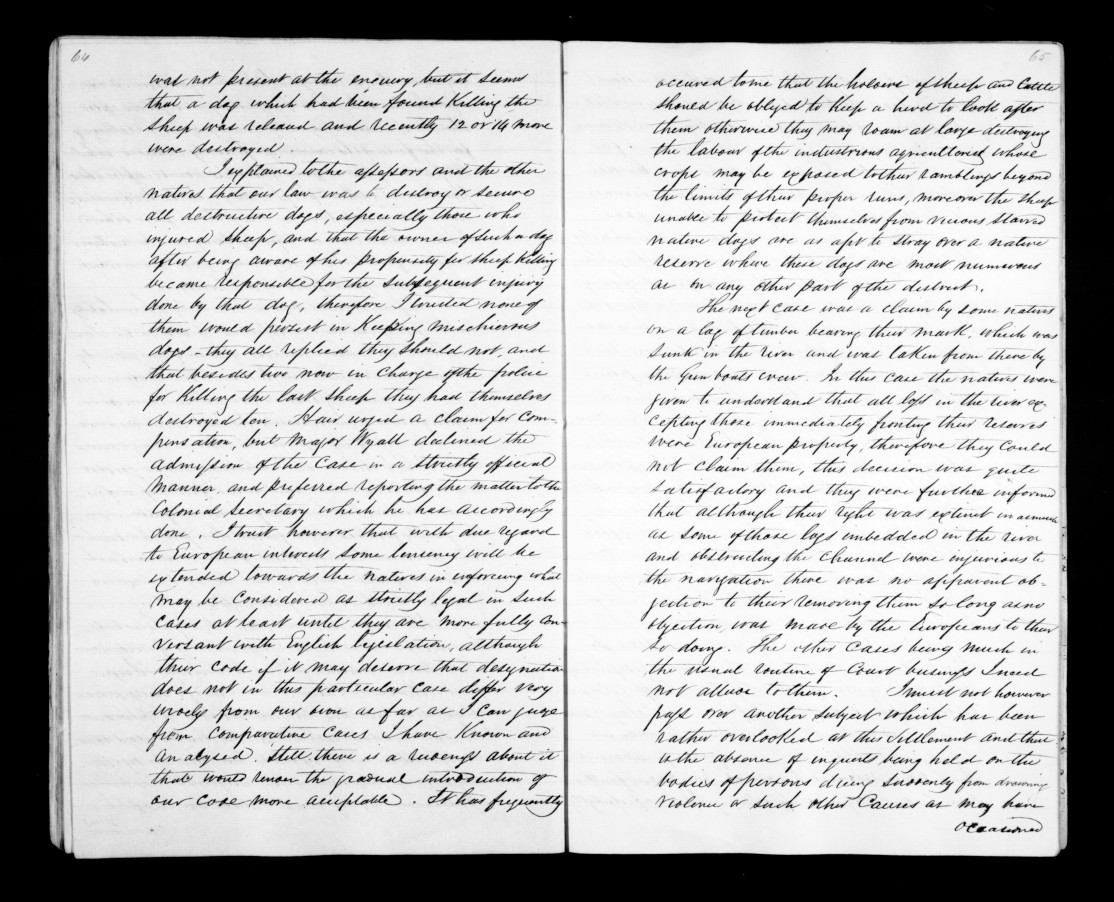 64
was not present at the enquiry, but it seems
that a dog which had been found killing the
sheep was released and recently 12 or 14 more
were destroyed.
I explained to the assessors and the other
natives that our law was to destroy or secure
all destructive dogs, especially those who
injured sheep, and that the owner of such a dog
after being aware of his propensity for sheep killing
became responsible for the subsequent injury
done by that dog, therefore I trusted none of
them would persist in keeping mischievous
dogs - they all replied they should not, and
that besides two now in charge of the police
for killing the last sheep they had themselves
destroyed ten. Hair urged a claim for com-
pensation, but Major Wyatt declined the
admission of the case in a strictly official
manner, and preferred reporting the matter to the
Colonial Secretary which he has accordingly
done. I trust however that with due regard
to European interests some leniency will be
extended towards the natives in enforcing what
may be considered as strictly legal in such
cases at least until they are more fully con-
versant with English legislation, although
their code if it may deserve that designation
does not in this particular case differ very
widely from our own as far as I can judge
from comparative cases I have known and
analysed. Still there is a rudeness about it
that would render the gradual introduction of
our code more acceptable. It has frequently
65
occured to me that the holders of sheep and Cattle
should be obliged to keep a herd to look after
them otherwise they may roam at large destroying
the labour of the industrious agriculturist whose
crops may be exposed to their ramblings beyond
the limits of their proper runs, moreover the sheep
unable to protect themselves from vicious starved
native dogs are as apt to stray over a native
reserve where these dogs are most numerous
as on any other part of the district.
The next case was a claim by some natives
on a log of timber bearing their mark, which was
sunk in the river and was taken from there by
the Gun boats crew. In this case the natives were
given to understand that all left in the river ex-
cepting those immediately fronting their reserves
were European property, therefore they could
not claim them, this decision was quite
satisfactory and they were further informed
that although their right was extinct in asmuch
as some of those logs imbedded in the river
and obstructing the channel were injurious to
the navigation there was no apparent ob-
jection to their removing them so long as no
objection was made by the Europeans to their
so doing. The other cases being much in
the usual routine of Court business I need
not allude to them. I must not however
pass over another subject which has been
rather overlooked at this Settlement and that
is the absence of inquests being held on the
bodies of persons dying suddenly from drowning
violence or such other causes as may have
occasioned